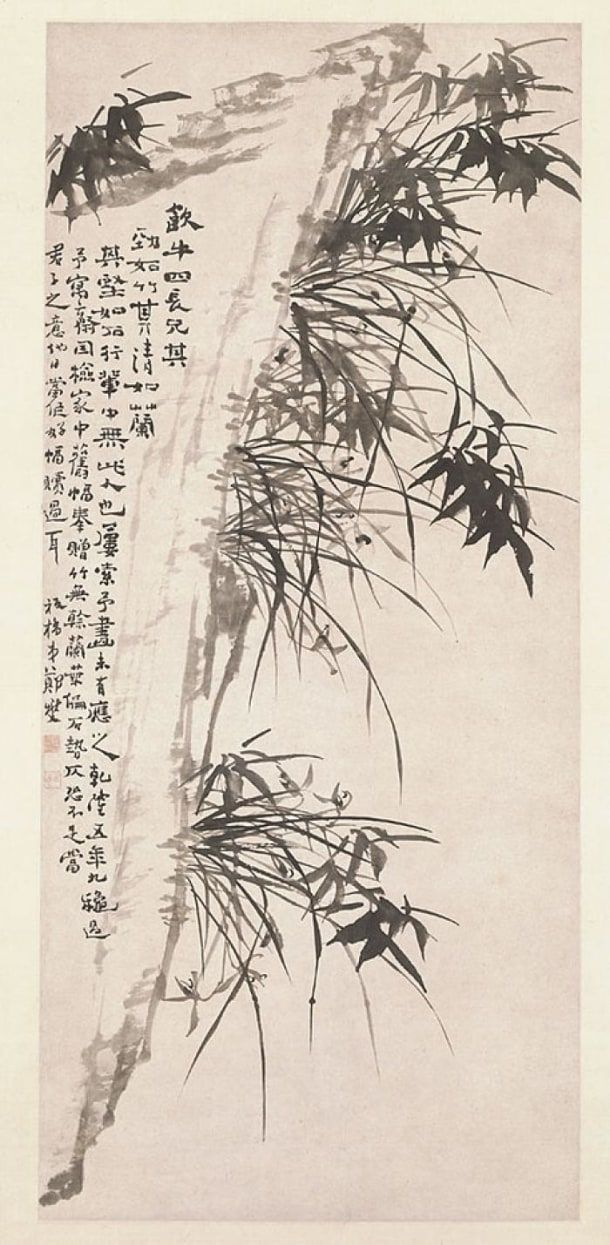 四長兄其
勁如竹其清如蘭
其堅如石行輩中無此人也屢索予畫未有應之乾隆五年九穐過
予寓齋因檢家中舊幅奉贈竹無餘蘭葉偏石勢仄恐不足當
君子之意他日當作好幅贖過耳 板橋弟鄭燮